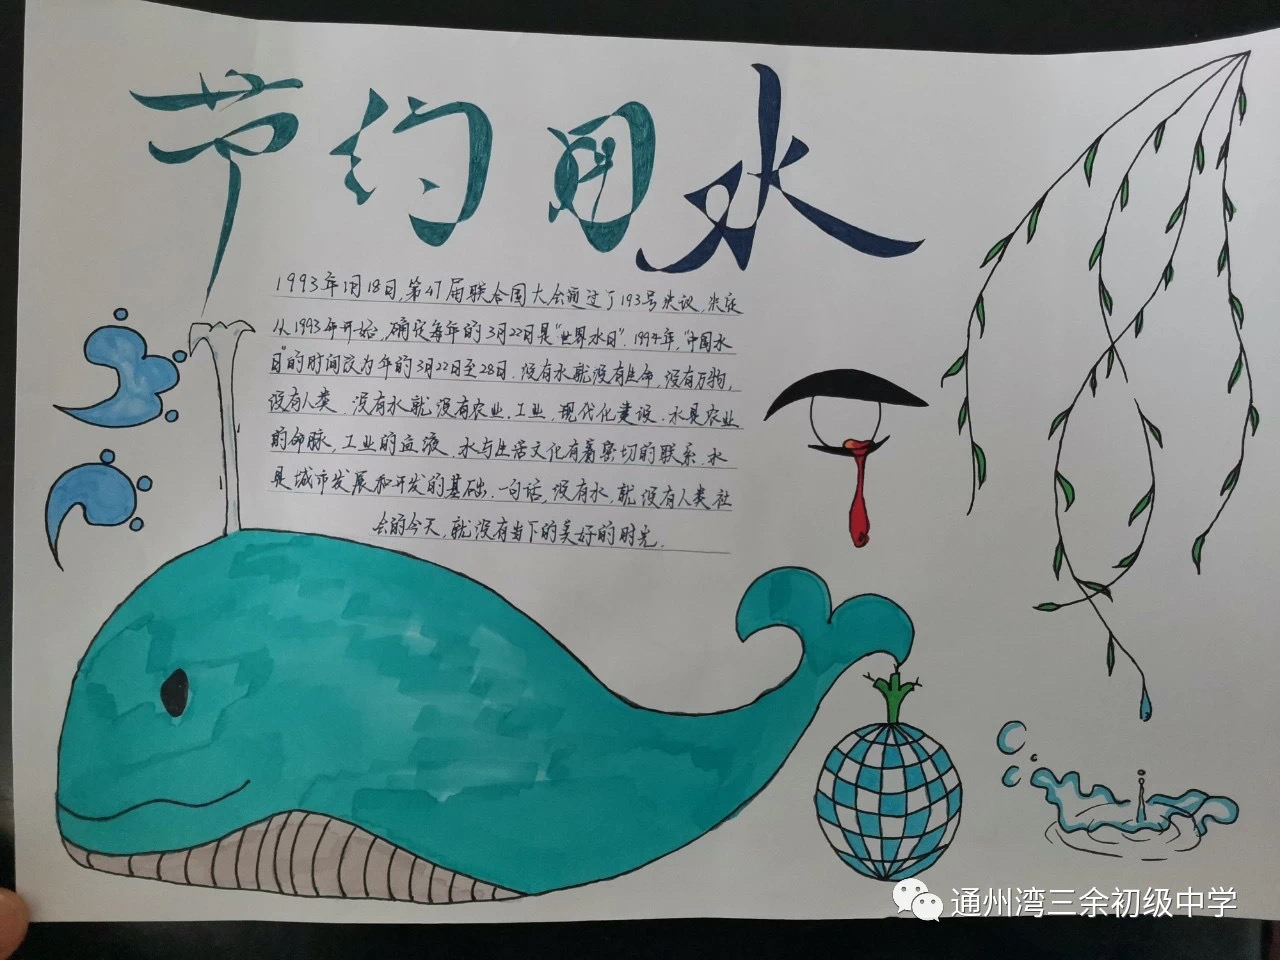 节约用水
1993年1月18日,第47届联合国大会通过了193号决议,决定
从1993年开始,确定每年的3月22日是"世界水日".1994年,"中国水
日"的时间改为年的3月22日至28日.没有水就没有生命,没有万物,
没有人类.没有水就没有农业.工业.现代化建设.水是农业
的命脉,工业的血液.水与生活文化有着密切的联系.水
是城市发展和开发的基础.一句话,没有水,就没有人类社
会的今天,就没有当下的美好的时光.
通州湾三余初级中学